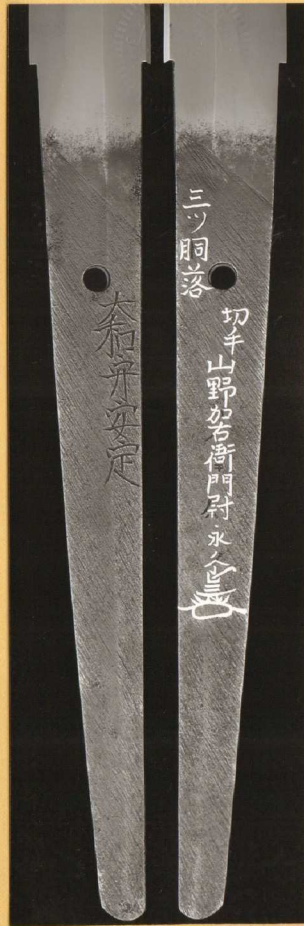 大和守安定
三ツ胴落
切手 山野加右衛門尉永久